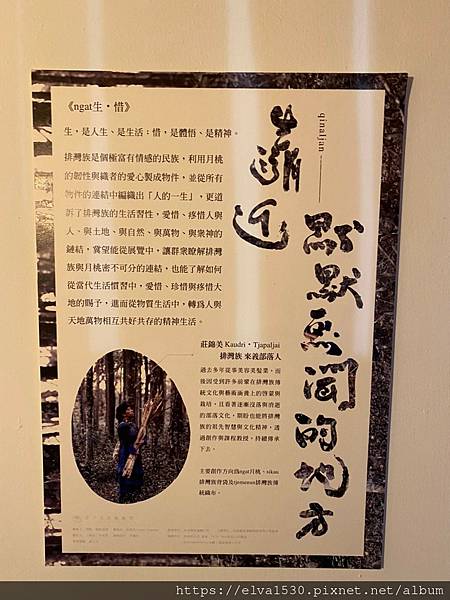 《ngat生・惜》
生，是人生、是生活；惜，是體悟、是精神。
排灣族是個極富有情感的民族，利用月桃
的韌性與織者的愛心製成物件，並從所有
物件的連結中編織出「人的一生」，更道
訴了排灣族的生活習性，愛惜、疼惜人與
人、與土地、與自然、與萬物、與眾神的
鏈結，冀望能從展覽中，讓群眾瞭解排灣
族與月桃密不可分的連結，也能了解如何
從當代生活慣習中，愛惜、珍惜與疼惜大
地的賜予，進而從物質生活中，轉爲人與
天地萬物相互共好共存的精神生活。
qinaljan
靠近
默默無聞的地方
莊錦美 Kaudri・Tjapaljai
排灣族 來義部落人
過去多年從事美容美髮業，而
後因受到許多前輩在排灣族傳
統文化與藝術涵養上的啓蒙與
栽培，且看著逐漸沒落與消逝
的部落文化，期盼也能將排灣
族的祖先智慧與文化精神，透
過創作與課程教授，持續傳承
下去。
主要創作方向爲ngat月桃、sikau
排灣族背袋及tjemenun排灣族傳
統織布。
https://elva1530.pixnet.net/album